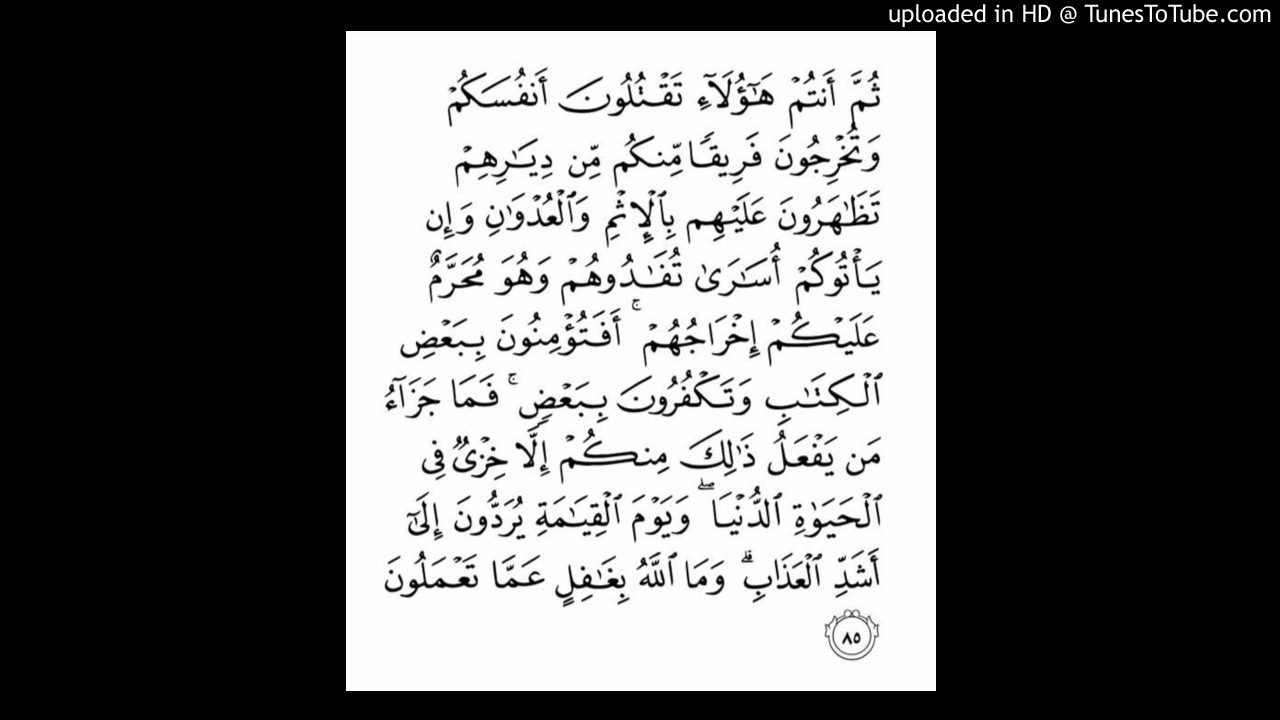 uploaded in HD @ TunesToTube.com
ثُمَّ أَنتُمْ هَـٰٓؤُلَآءِ تَقْتُلُونَ أَنفُسَكُمْ
وَتُخْرِجُونَ فَرِيقًا مِّنكُم مِّن دِيَـٰرِهِمْ
تَظَـٰهَرُونَ عَلَيْهِم بِٱلْإِثْمِ وَٱلْعُدْوَٰنِ وَإِن
يَأْتُوكُمْ أُسَـٰرَىٰ تُفَـٰدُوهُمْ وَهُوَ مُحَرَّمٌ
عَلَيْكُمْ إِخْرَاجُهُمْ ۚ أَفَتُؤْمِنُونَ بِبَعْضِ
ٱلْكِتَـٰبِ وَتَكْفُرُونَ بِبَعْضٍ ۚ فَمَا جَزَآءُ
مَن يَفْعَلُ ذَٰلِكَ مِنكُمْ إِلَّا خِزْىٌ فِى
ٱلْحَيَوٰةِ ٱلدُّنْيَا ۖ وَيَوْمَ ٱلْقِيَـٰمَةِ يُرَدُّونَ إِلَىٰٓ
أَشَدِّ ٱلْعَذَابِ ۗ وَمَا ٱللَّهُ بِغَـٰفِلٍ عَمَّا تَعْمَلُونَ
٨٥